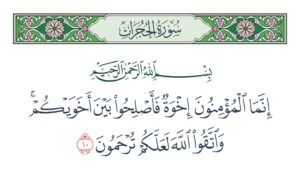 سُورَةُ الحُجُرَاتِ
بِسْمِ اللَّهِ الرَّحْمَٰنِ الرَّحِيمِ
إِنَّمَا الْمُؤْمِنُونَ إِخْوَةٌ فَأَصْلِحُوا بَيْنَ أَخَوَيْكُمْ ۚ
وَاتَّقُوا اللَّهَ لَعَلَّكُمْ تُرْحَمُونَ ١٠